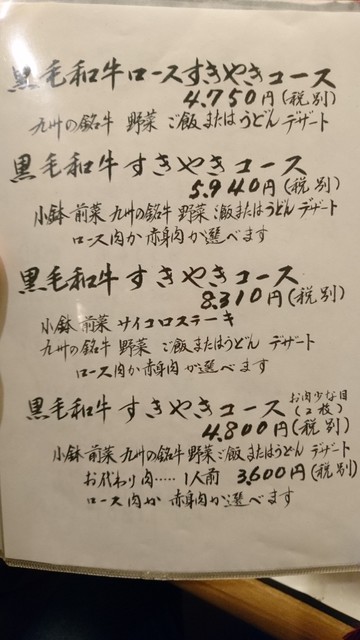 黒毛和牛ロースすきやきコース
4.750円(税別)
九州の銘牛 野菜 ご飯またはうどん デザート
黒毛和牛すきやきコース
5.940円(税別)
小鉢 前菜 九州の銘牛 野菜 ご飯またはうどん デザート
ロース肉か赤身肉が選べます
黒毛和牛すきやきコース
8.310円(税別)
小鉢 前菜 サイコロステーキ
九州の銘牛 野菜 ご飯またはうどん デザート
ロース肉か赤身肉が選べます
黒毛和牛すきやきコース お肉少な目(2枚)
4.800円(税別)
小鉢 前菜 九州の銘牛 野菜 ご飯またはうどん デザート
お代わり肉.....1人前 3,600円(税別)
ロース肉か 赤身肉が選べます